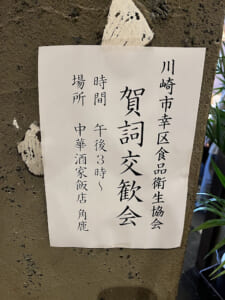 川崎市幸区食品衛生協会
賀詞交歓会
時間　午後3時～
場所　中華酒家飯店 角鹿